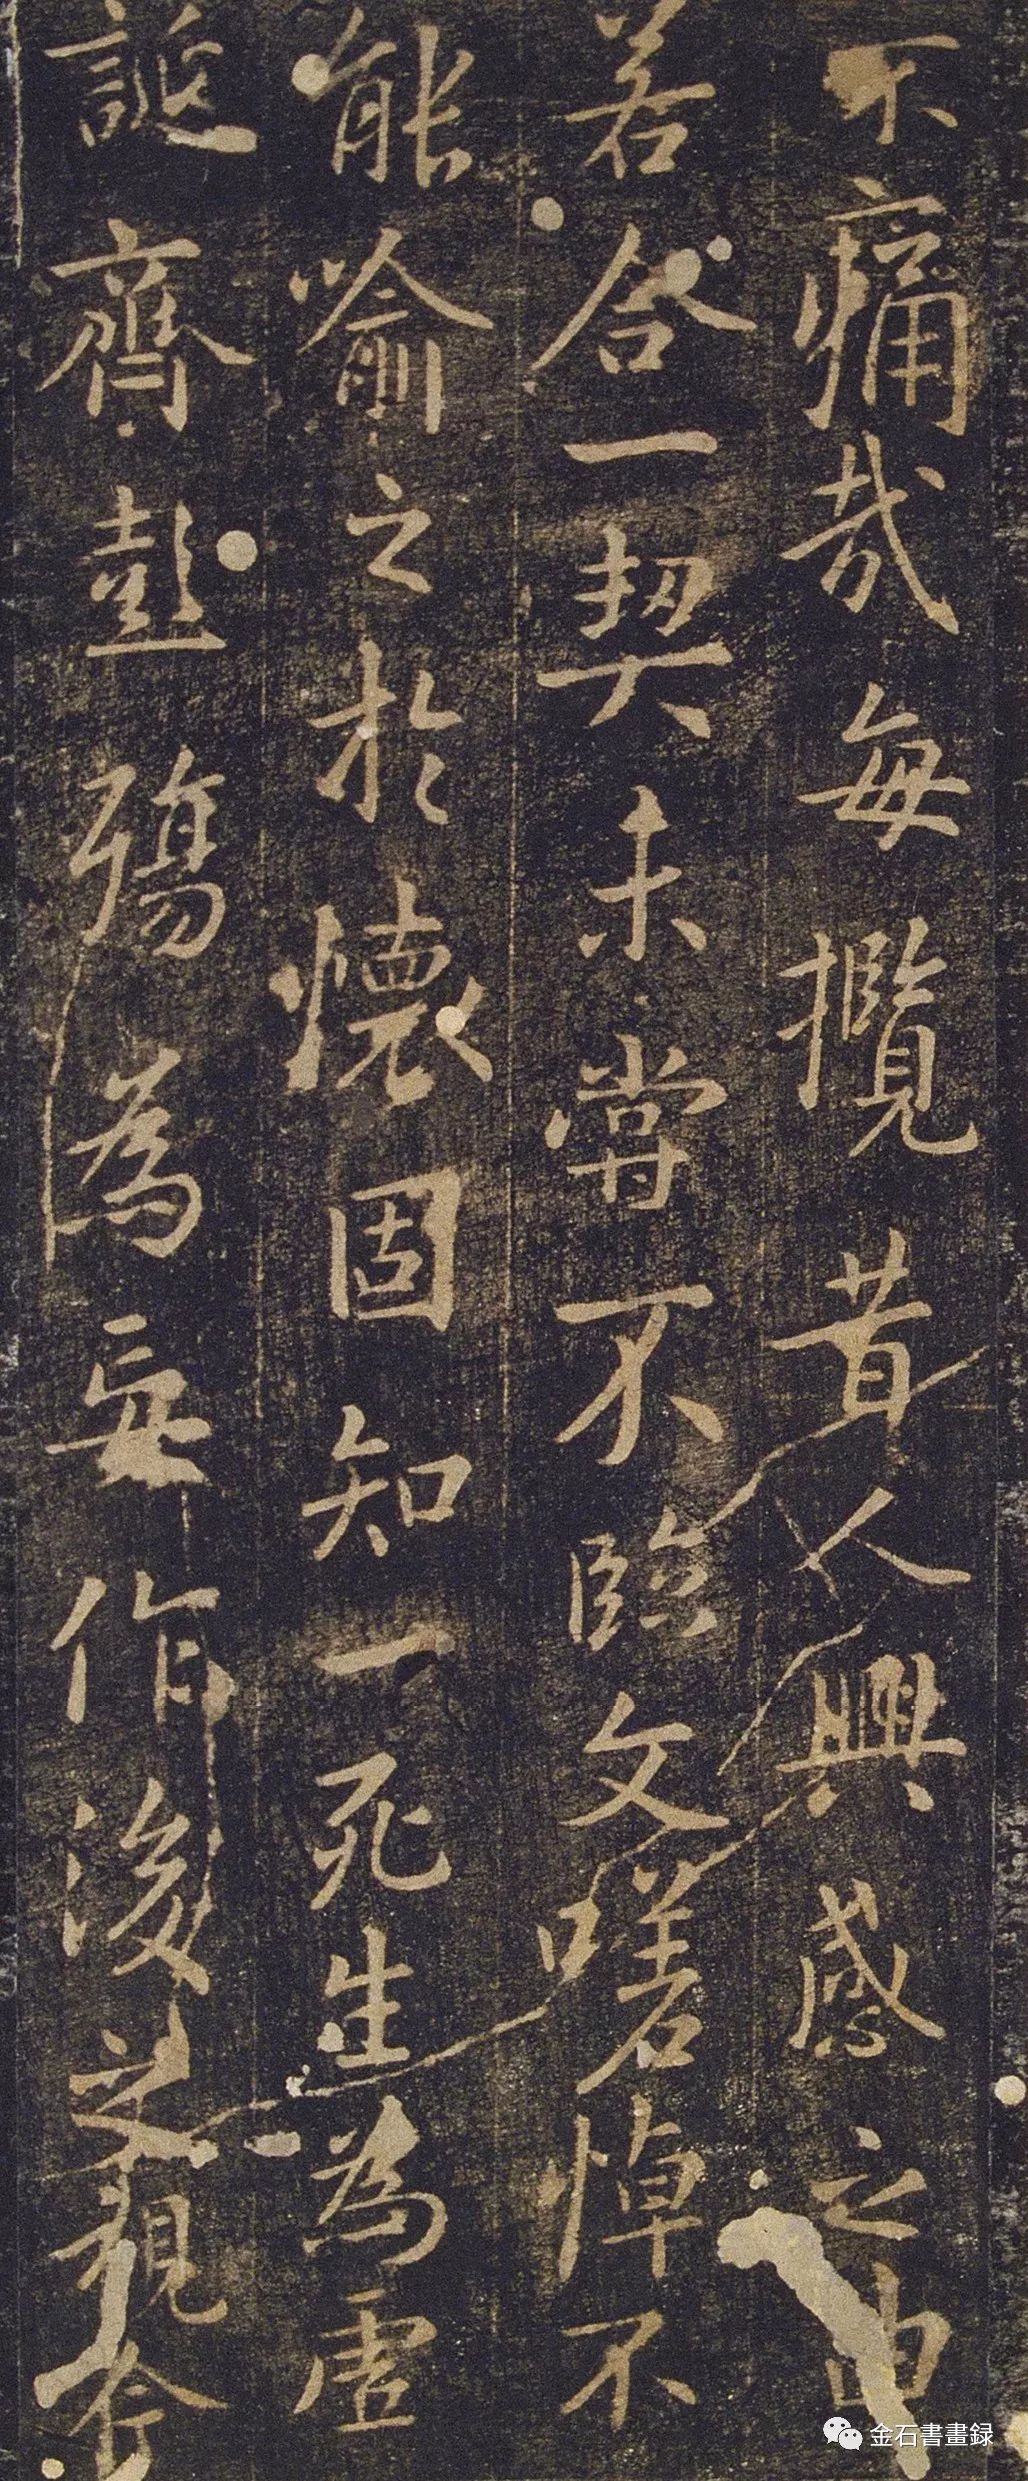 不痛哉每攬昔人興感之由
若合一契未嘗不臨文嗟悼不
能喻之於懷固知一死生為虛
誕齊彭殤為妄作後之視今
金石書畫録